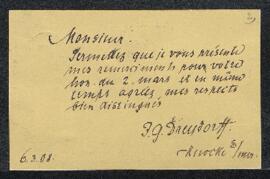 Monsieur.
Permettez que je vous présente
mes remerciments pour votre
bon. du 2. mars et en même
temps agréez, mes respects
bien distingués
Knocke s/mer.
6.3.08.